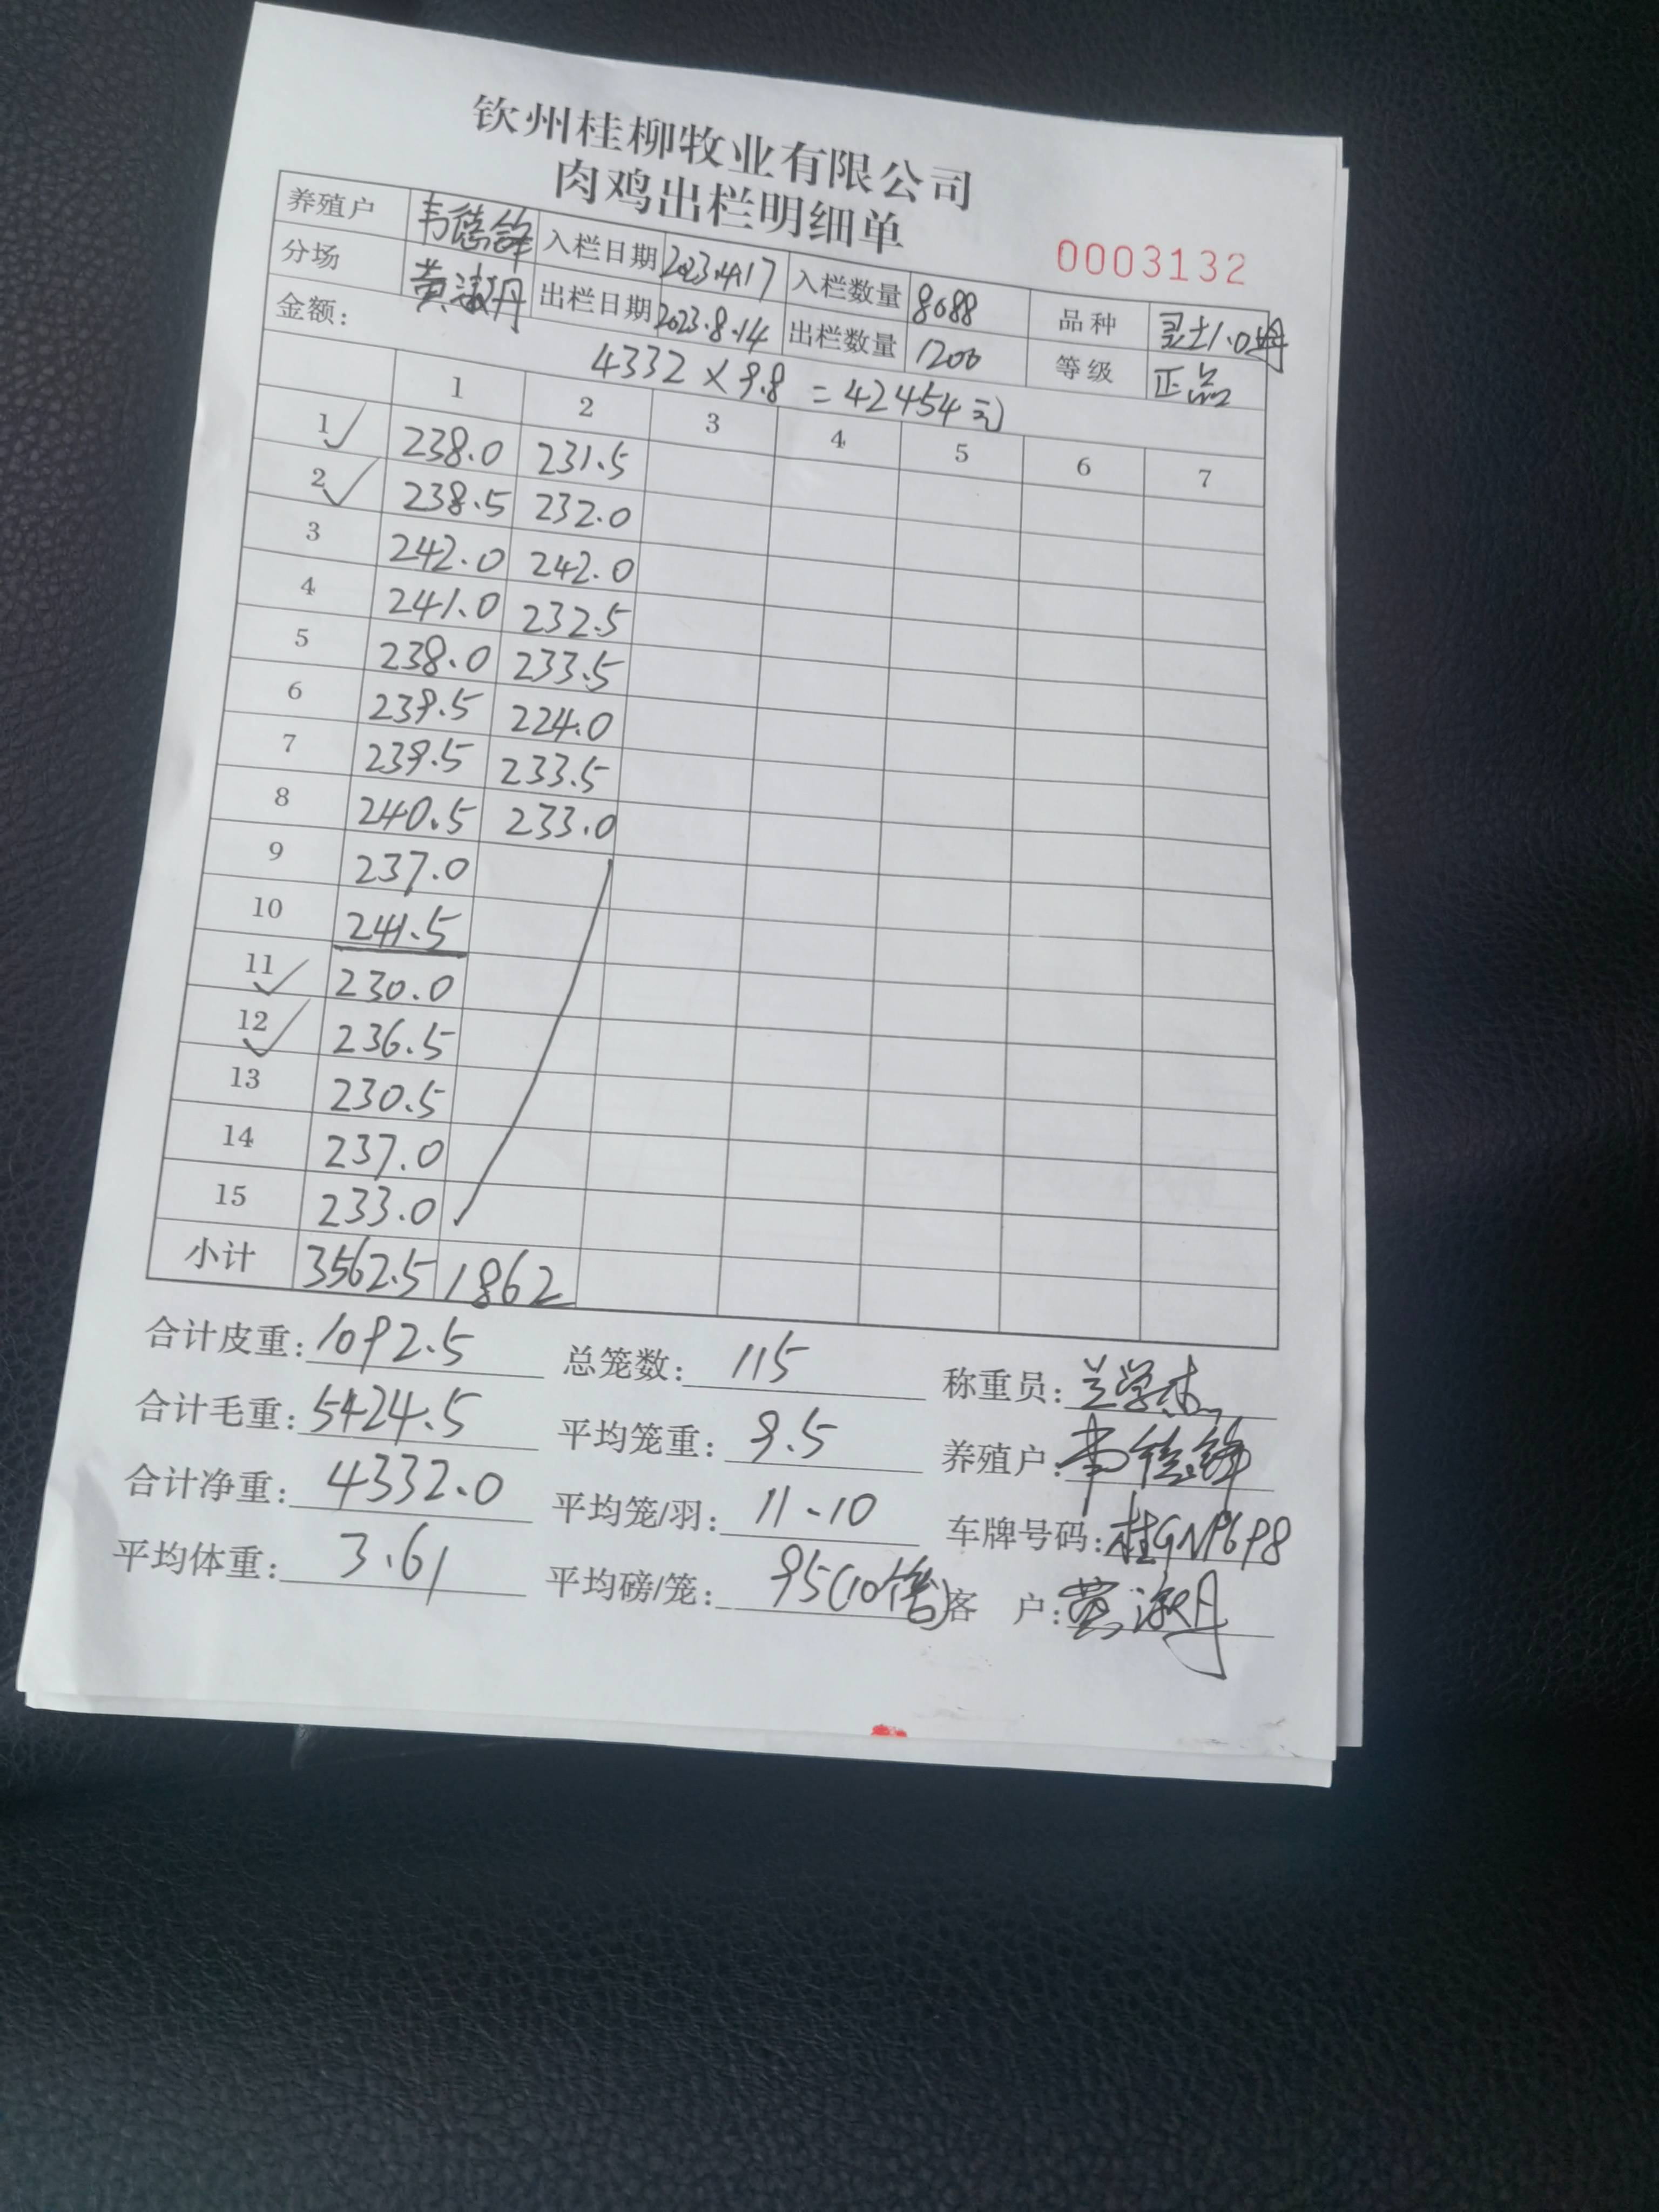 钦州桂柳牧业有限公司
肉鸡出栏明细单
0003132
养殖户 韦德锋 入栏日期 2023.4.17 入栏数量 8688 品种 灵土1.0母
分场 黄淑丹 出栏日期 2023.8.14 出栏数量 1200 等级 正品
金额: 4332×9.8=42454元
1 2 3 4 5 6 7
1 238.0 231.5
2 238.5 232.0
3 242.0 242.0
4 241.0 232.5
5 238.0 233.5
6 239.5 224.0
7 239.5 233.5
8 240.5 233.0
9 237.0
10 241.5
11 230.0
12 236.5
13 230.5
14 237.0
15 233.0
小计 3562.5 1862
合计皮重: 1092.5 总笼数: 115 称重员: 兰学杰
合计毛重: 5424.5 平均笼重: 9.5 养殖户: 韦德锋
合计净重: 4332.0 平均笼/羽: 11-10 车牌号码: 桂GN9698
平均体重: 3.61 平均磅/笼: 95(10倍) 客 户: 黄淑丹